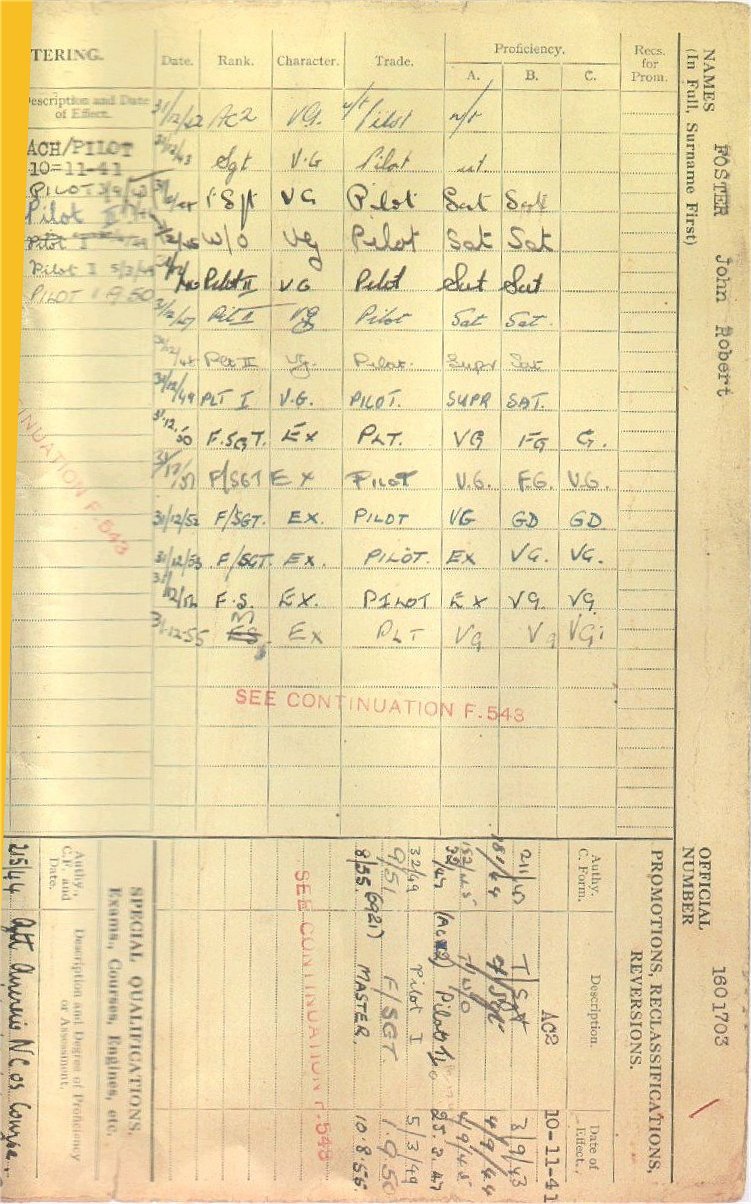 NAMES
(In Full, Surname First)
FOSTER John Robert
TERING.
Description and Date
of Effect.
ACH/PILOT
10=11-41
PILOT 3/9/43
Pilot II
Pilot I
Pilot I 5/3/49
PILOT 1 9.50
Date. Rank. Character. Trade. Proficiency. Recs. for Prom.
A. B. C.
31/12/42 AC2 VG. u/t Pilot n/t
31/12/43 Sgt V.G Pilot
VG Pilot Sat Sat
W/O Vg Pilot Sat Sat
Pilot II VG Pilot Sat Sat
31/12/47 Plt II Vg Pilot Sat Sat.
31/12/48 Plt II Vg. Pilot. Supr Sat
31/12/49 PLT I V.G. PILOT. SUPR SAT.
31.12.50 F.SGT. Ex PLT. VG FG G.
31/12/51 F/SGT EX PILOT V.G. F.G. V.G.
31/12/52 F/SGT. EX. PILOT VG GD GD
31/12/53 F/SGT. EX. PILOT. EX VG. VG.
F.S. EX. PILOT EX VG. VG
31-12-55 F.S. M Ex PLT VG VG VG
SEE CONTINUATION F.543
INUATION F.543
OFFICIAL
NUMBER
1601703
PROMOTIONS, RECLASSIFICATIONS,
REVERSIONS.
Authy. C. Form. Description. Date of Effect.
AC2 10-11-41
211/43 T/Sgt 3/9/43
181/44 4/9/44
T/W/O 4/9/45
Pilot II 25.2.47
32/49 Pilot I 5/3/49
9/51 F/SGT. 1.9.50
8/55 (6921) MASTER. 10.8.55.
SEE CONTINUATION F.543
SPECIAL QUALIFICATIONS.
Exams., Courses, Engines, etc.
Authy., C.F. and Date.
Description and Degree of Proficiency
or Assessment.
215/44 Att N.C.Os Course.